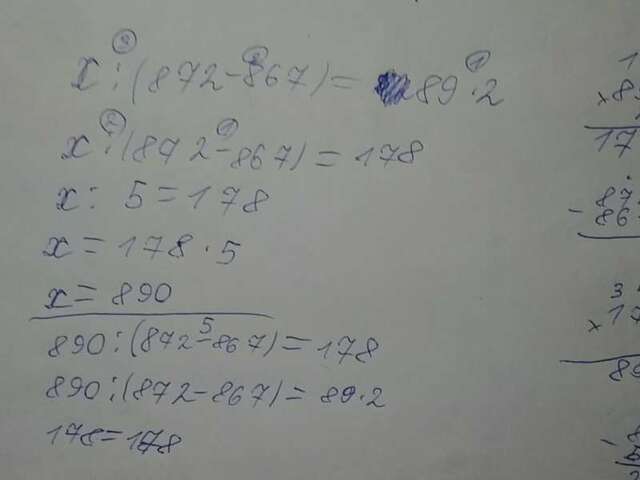 x:(872-867)=89·2
x:(872-867)=178
x: 5=178
x=178·5
x=890
890:(872-867)=178
5
890:(872-867)=89·2
178=178
1
×8
17
87
-867
3
×17
89